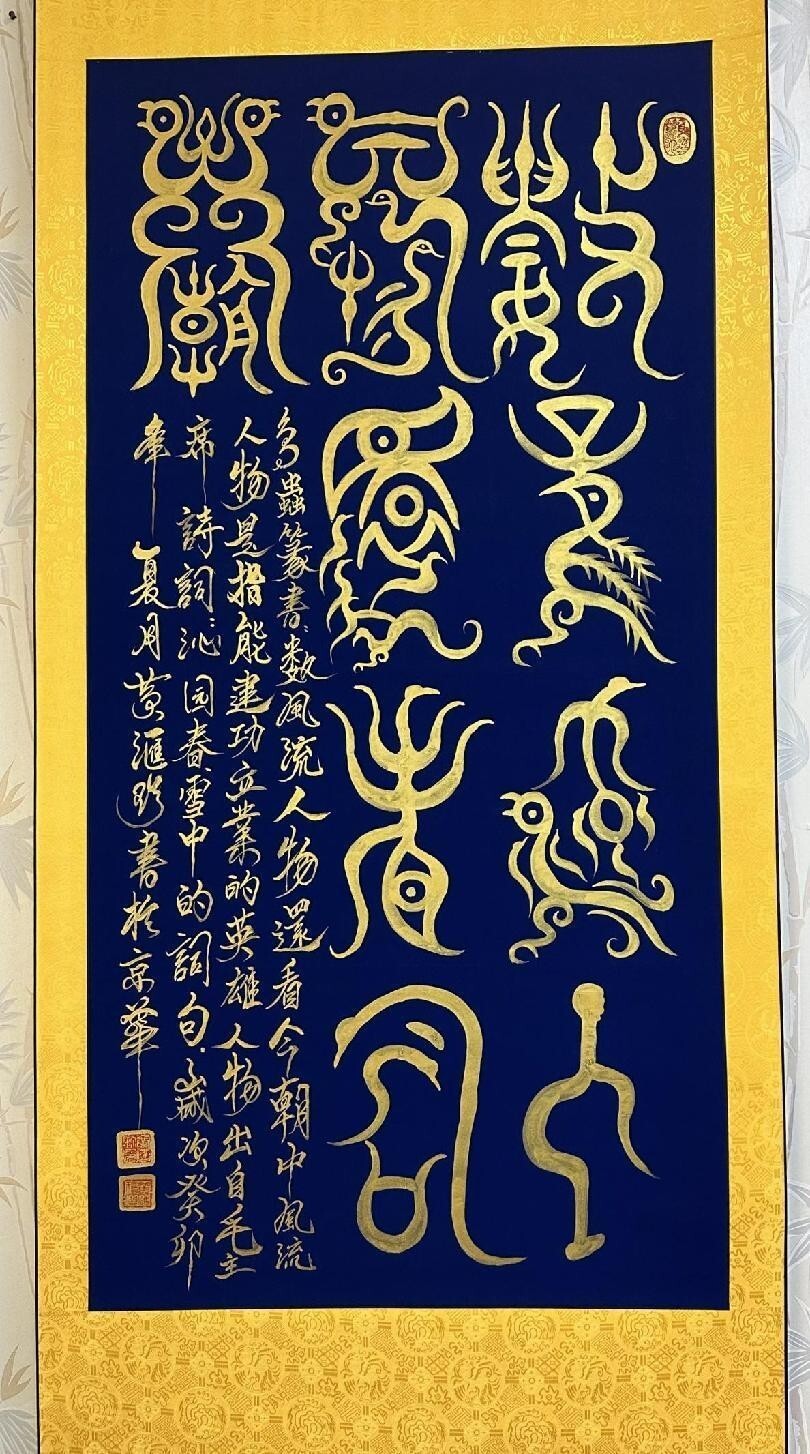 數風流人
物還看今
朝
鳥蟲篆書:数風流人物還看今朝中風流
人物是指能建功立業的英雄人物出自毛主
席詩詞:沁园春雪中的詞句.歲次癸卯
年夏月黃滙珍書於京華